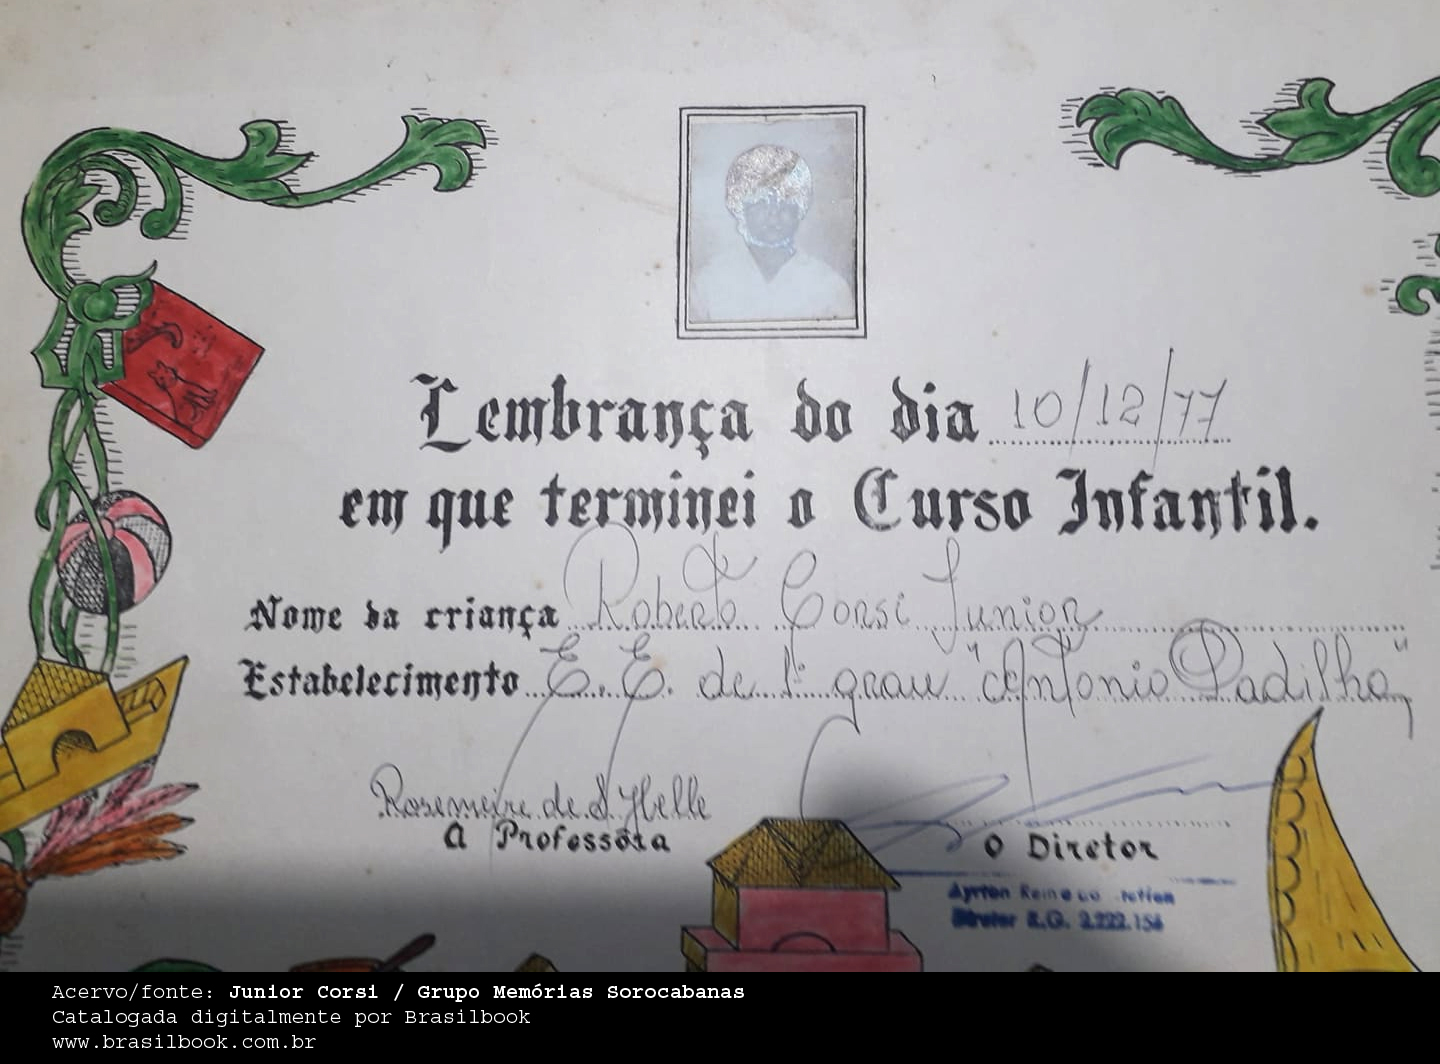 Lembrança do dia 10/12/77
em que terminei o Curso Infantil.
Nome da criança Roberto Corsi Junior
Estabelecimento E. E. de 1º grau "Antonio Padilha"
Rosemeire de
A Professôra
O Diretor
Ayrton
Diretor R.G. 2.222.156
Acervo/fonte: Junior Corsi / Grupo Memórias Sorocabanas
Catalogada digitalmente por Brasilbook
www.brasilbook.com.br